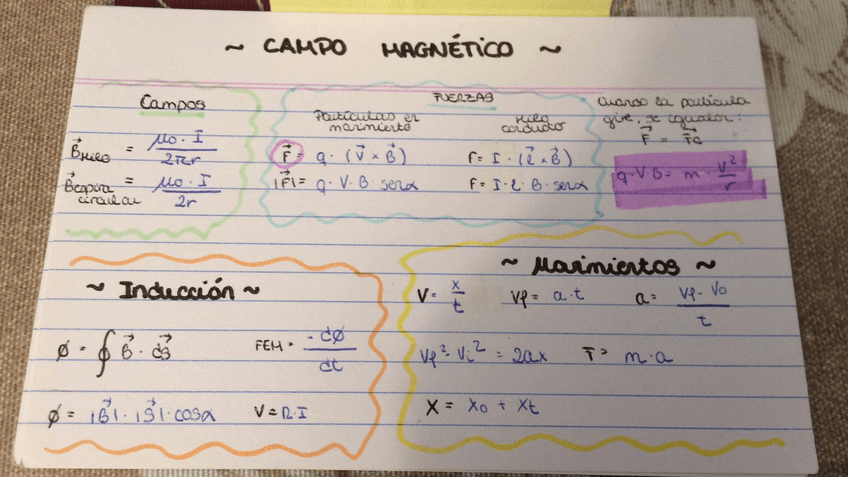 ~ CAMPO MAGNÉTICO ~
Campos
B⃗ HILO = μo · I / 2πr
B⃗ espira circular = μo · I / 2r
FUERZAS
Partículas en movimiento
F⃗ = q · (V⃗ × B⃗)
|F⃗| = q · V · B · senα
Hilo conductor
F = I · (ℓ⃗ × B⃗)
F = I · ℓ · B · senα
cuando la partícula
gire, se igualan:
F⃗ = F⃗c
q·V·B = m · V² / r
~ Inducción ~
ϕ = ∮ B⃗ · dS⃗
FEM = -dϕ / dt
ϕ = |B⃗| · |S⃗| · cosα
V = R·I
~ Movimientos ~
V = x / t
Vf = a·t
a = Vf - Vo / t
Vf² - Vi² = 2ax
F = m·a
X = Xo + Xt